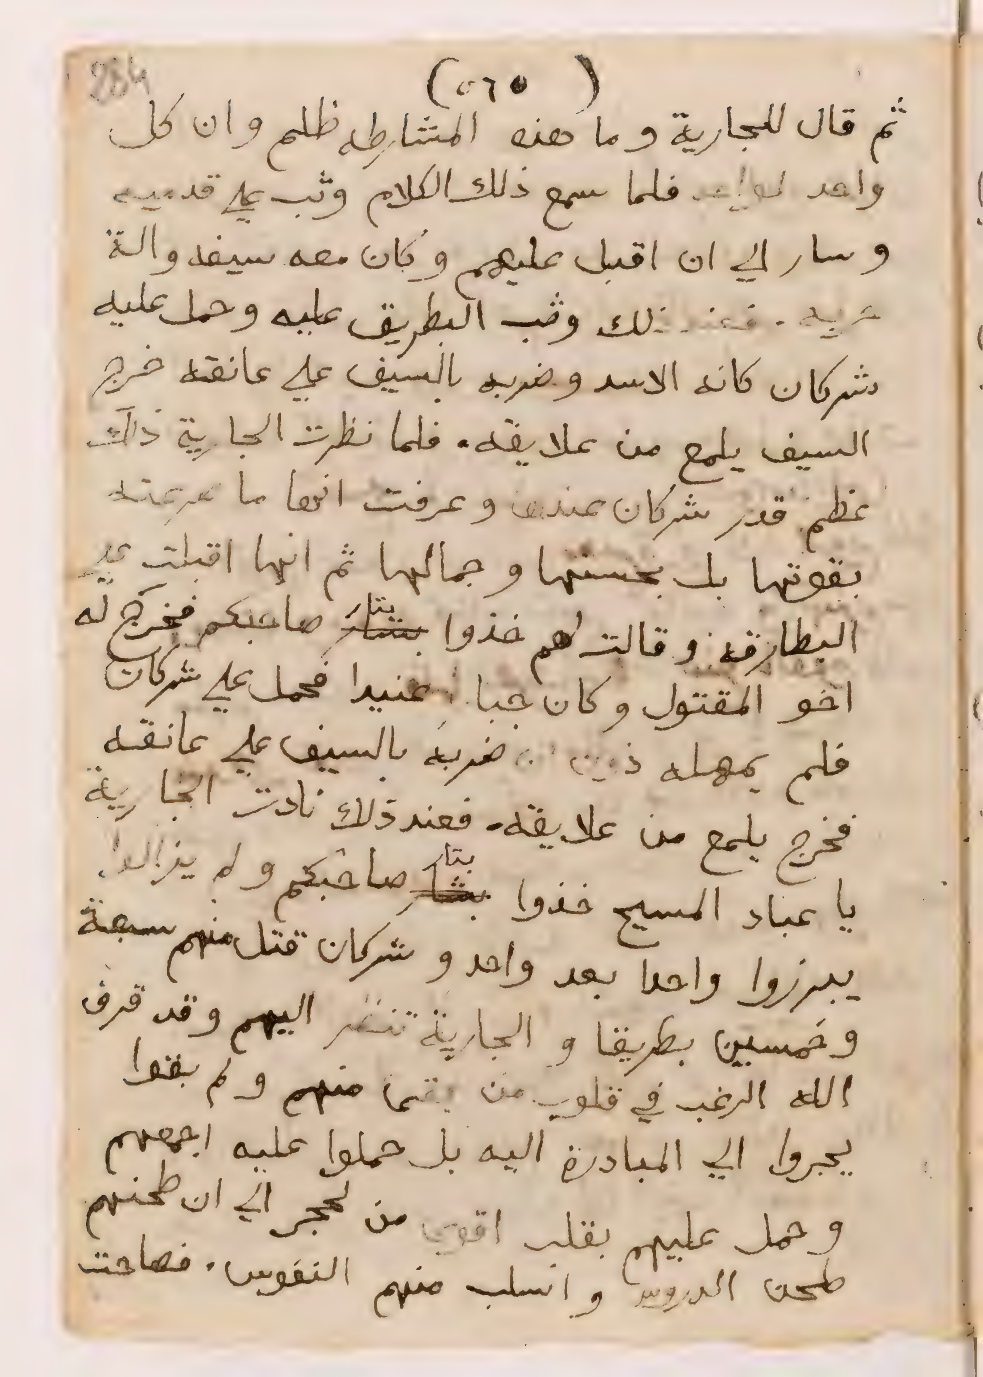 284
(٥٦٥)
ثم قال للجارية وما هذه المشارطه ظلم وان كل
واحد لواحد فلما سمع ذلك الكلام وثب علي قدميه
وسار الي ان اقبل عليهم وكان معه سيفه والة
حربه. فعند ذلك وثب البطريق عليه وحمل عليه
شركان كانه الاسد وضربه بالسيف علي عاتقه خرج
السيف يلمع من علايقه. فلما نظرت الجارية ذلك
عظم قدر شركان عندها وعرفت انها ما صرعته
بقوتها بل بحسنها وجمالها ثم انها اقبلت علي
البطارقه وقالت لهم خذوا بتار صاحبكم فخرج له
اخو المقتول وكان جبارا عنيدا فحمل علي شركان
فلم يمهله دون ان ضربه بالسيف علي عاتقه
فخرج يلمع من علايقه. فعند ذلك نادت الجارية
يا عباد المسيح خذوا بتار صاحبكم ولم يزالوا
يبرزوا واحدا بعد واحد وشركان قتل منهم سبعة
وخمسين بطريقا والجارية تنظر اليهم وقد قرف
الله الرعب في قلوب من بقى منهم ولم بقوا
يجروا الي المبادرة اليه بل حملوا عليه اجمعهم
وحمل عليهم بقلب اقوى من لحجر الي ان طحنهم
طحن الدروس وانسلب منهم النفوس. فصاحت